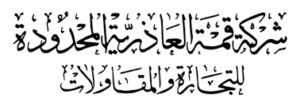 شركة قمة العاذرية المحدودة
للتجارة والمقاولات